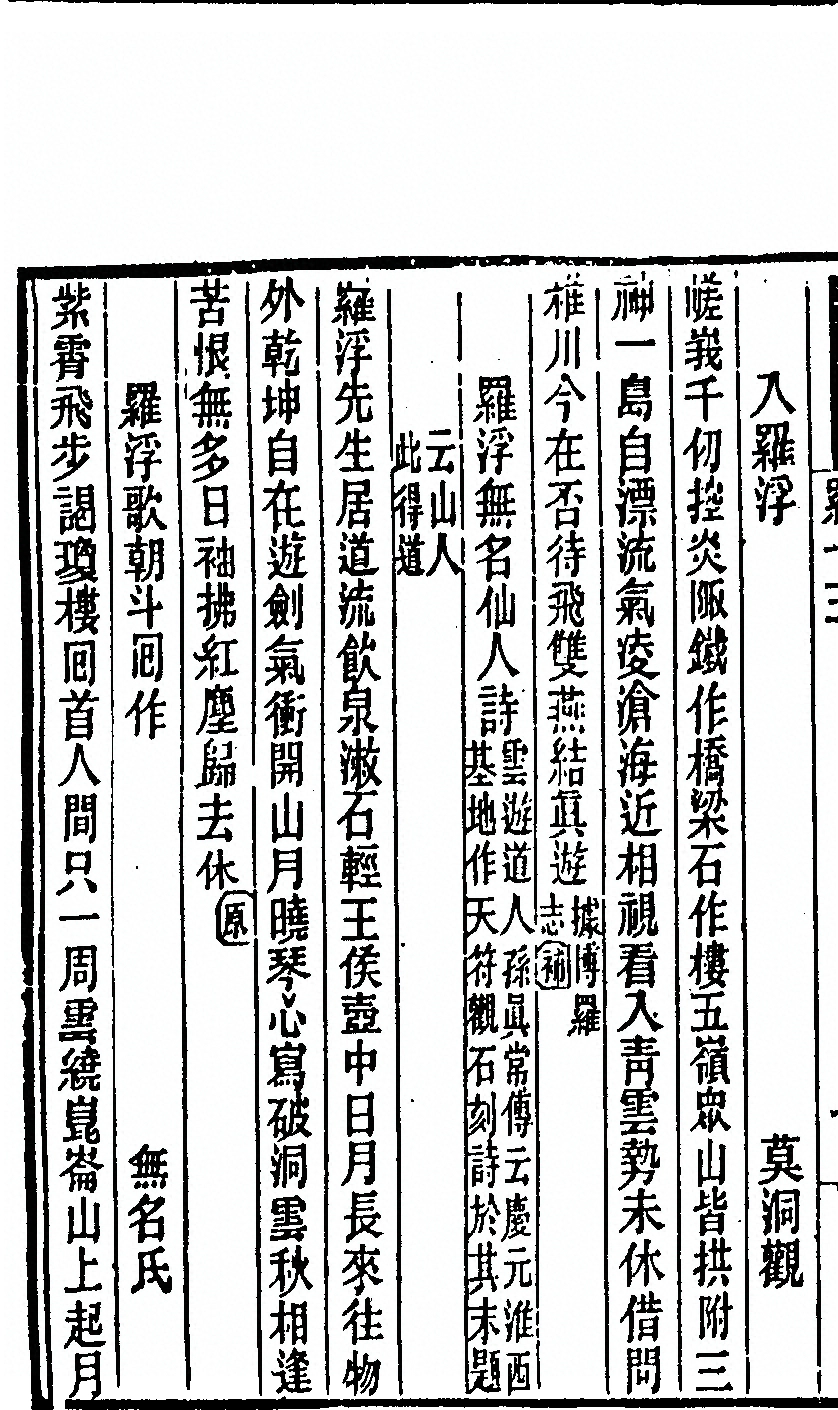 入羅浮　莫洞觀
嵯峩千仞控炎陬鐵作橋梁石作樓五嶺眾山皆拱附三
神一島自漂流氣凌滄海近相視看入青雲勢未休借問
稚川今在否待飛雙燕結眞遊據博羅志補
羅浮無名仙人詩雲遊道人孫眞常傳云慶元淮西基地作天符觀石刻詩於其末題
云山人此得道
羅浮先生居道流飲泉漱石輕王侯壺中日月長來往物
外乾坤自在遊劍氣衝開山月曉琴心寫破洞雲秋相逢
苦恨無多日袖拂紅塵歸去休原
羅浮歌朝斗囘作　無名氏
紫霄飛步謁瓊樓囘首人間只一周雲繞崑崙山上起月